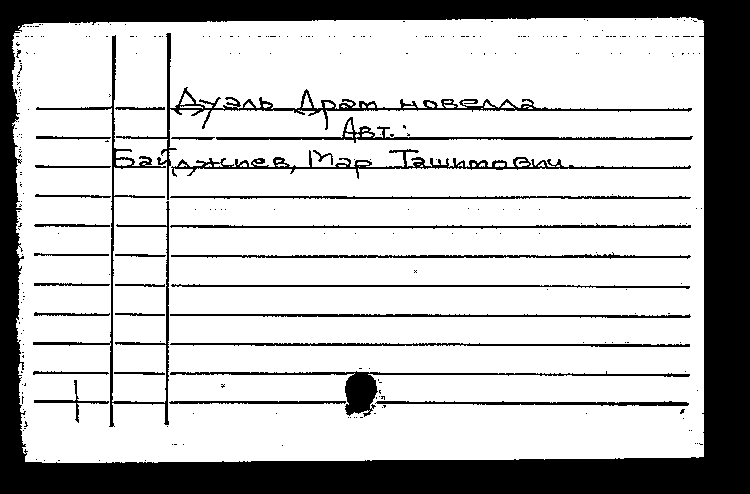 Дуэль Драм. новелла
Авт.:
Байджиев, Мар Ташимович.